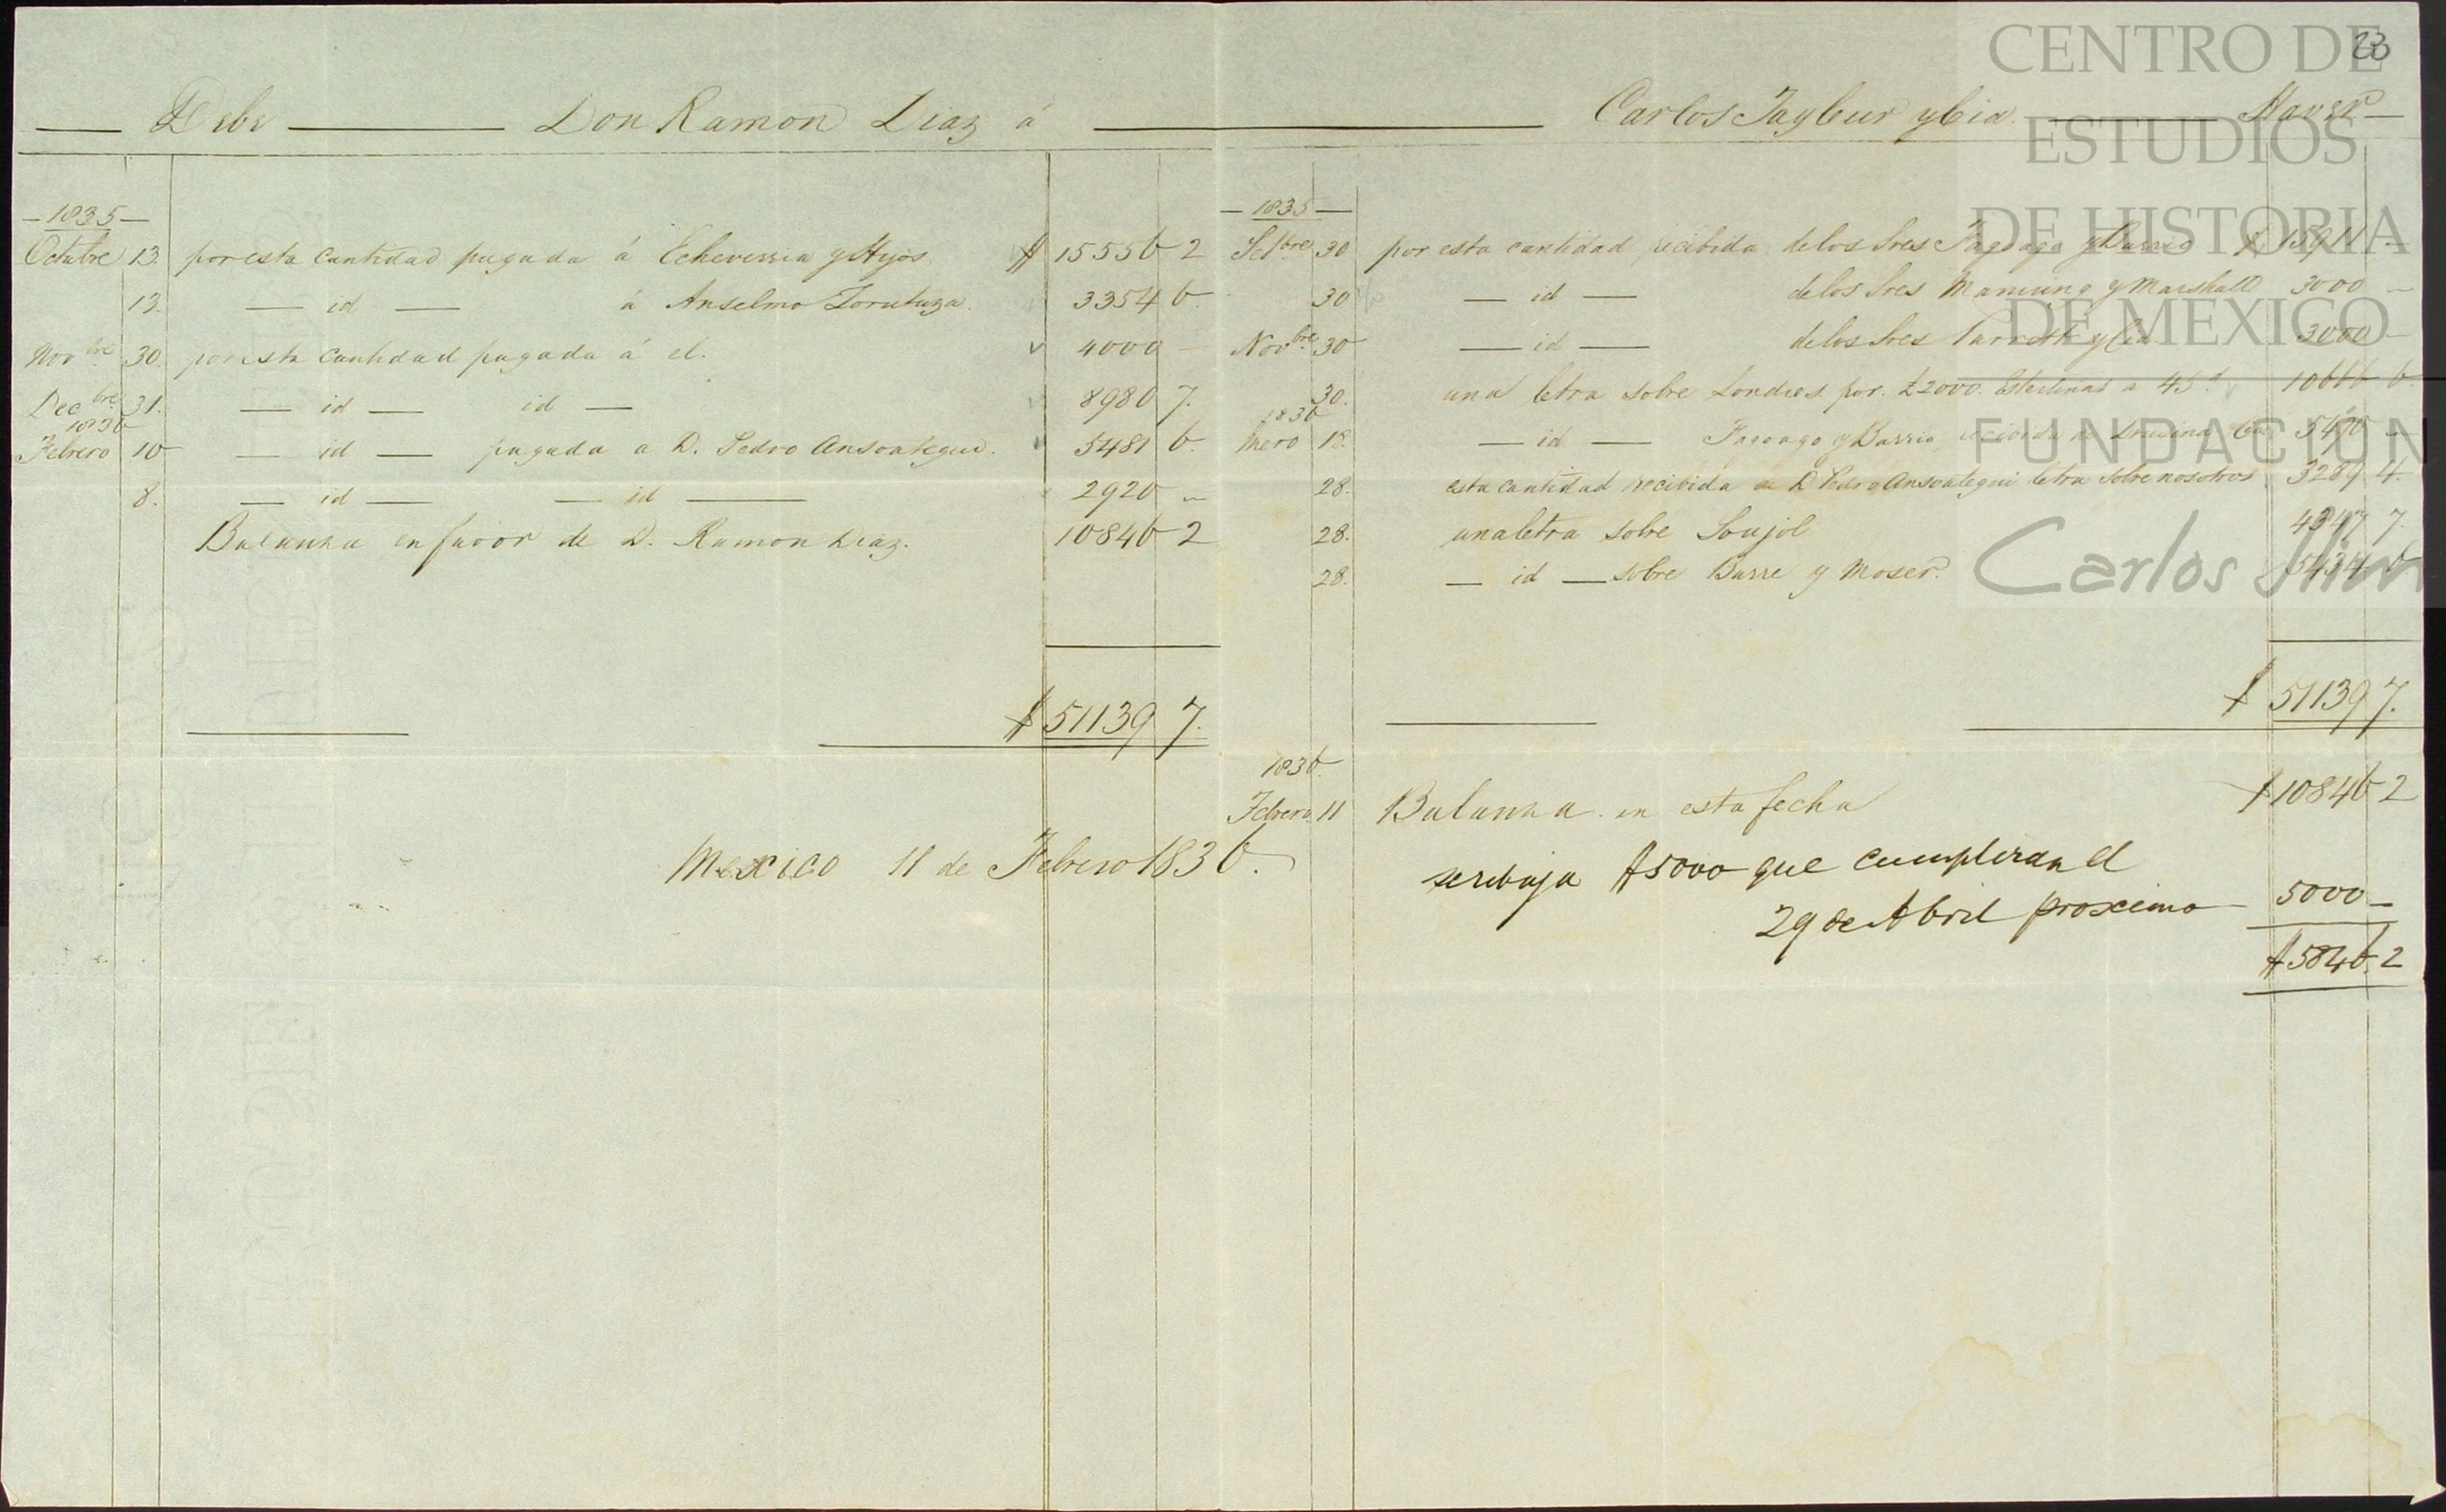 Debe Don Ramon Diaz á Carlos Tayleur y Cia Haver
23
— 1835 —
Octubre 13. por esta cantidad pagada á Echeverria y Hijos. $ 15556 2
13. — id — á Anselmo Zurutuza. 3354 6.
Novbre 30. por esta cantidad pagada á el. 4000 —
Decbre 31. — id — id — 8980 7.
1836
Febrero 10 — id — pagada a D. Pedro Ansoategui. 5481 6.
8. — id — — id — 2920 —
Balanza en favor de D. Ramon Diaz. 10846 2
$ 51139 7.
Mexico 11 de Febrero 1836.
— 1835 —
Setbre 30 por esta cantidad recibida de los Sres Fagoaga y Barrio $ 15911 —
30 — id — de los Sres Manning y Marshall 3000 —
Novbre 30 — id — de los Sres Parrott y Cia. 3000 —
30. una letra sobre Londres por £2000. Esterlinas a 45d 10666 6.
1836
Enero 18. — id — Fagoaga y Barrio, recibida de Drusina y Cia 5490 —
28. esta cantidad recibida de D Pedro Ansoategui letra sobre nosotros 3289 4.
28. una letra sobre Soujol 4347 7.
28. — id — sobre Barre y Moser. 5434 6
$ 51139 7.
1836.
Febrero 11 Balanza en esta fecha $ 10846 2
se rebaja $5000 que cumpliran el
29 de Abril proximo 5000 —
$ 5846. 2
CENTRO DE
ESTUDIOS
DE HISTORIA
DE MEXICO
FUNDACIÓN
Carlos Slim